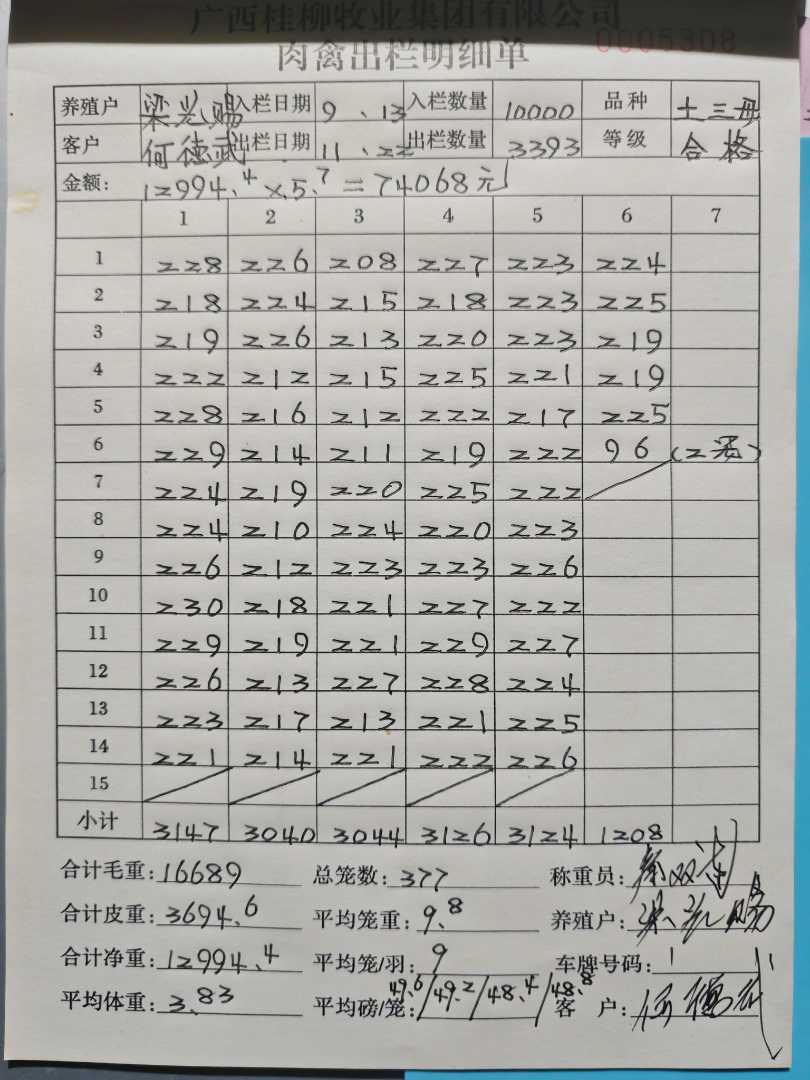 广西桂柳牧业集团有限公司
肉禽出栏明细单 0005308
养殖户 梁光赐 入栏日期 9、13 入栏数量 10000 品种 土三母
客户 何德武 出栏日期 11、22 出栏数量 3393 等级 合格
金额: 12994.4×5.7=74068元
1 2 3 4 5 6 7
1 228 226 208 227 223 224
2 218 224 215 218 223 225
3 219 226 213 220 223 219
4 222 212 215 225 221 219
5 228 216 212 222 217 225
6 229 214 211 219 222 96 (2笼)
7 224 219 220 225 222
8 224 210 224 220 223
9 226 212 223 223 226
10 230 218 221 227 222
11 229 219 221 229 227
12 226 213 227 228 224
13 223 217 213 221 225
14 221 214 221 222 226
15
小计 3147 3040 3044 3126 3124 1208
合计毛重: 16689 总笼数: 377 称重员:
合计皮重: 3694.6 平均笼重: 9.8 养殖户: 梁光赐
合计净重: 12994.4 平均笼/羽: 9 车牌号码:
平均体重: 3.83 平均磅/笼: 49.6/49.2/48.4/48.8 客 户: 何德武